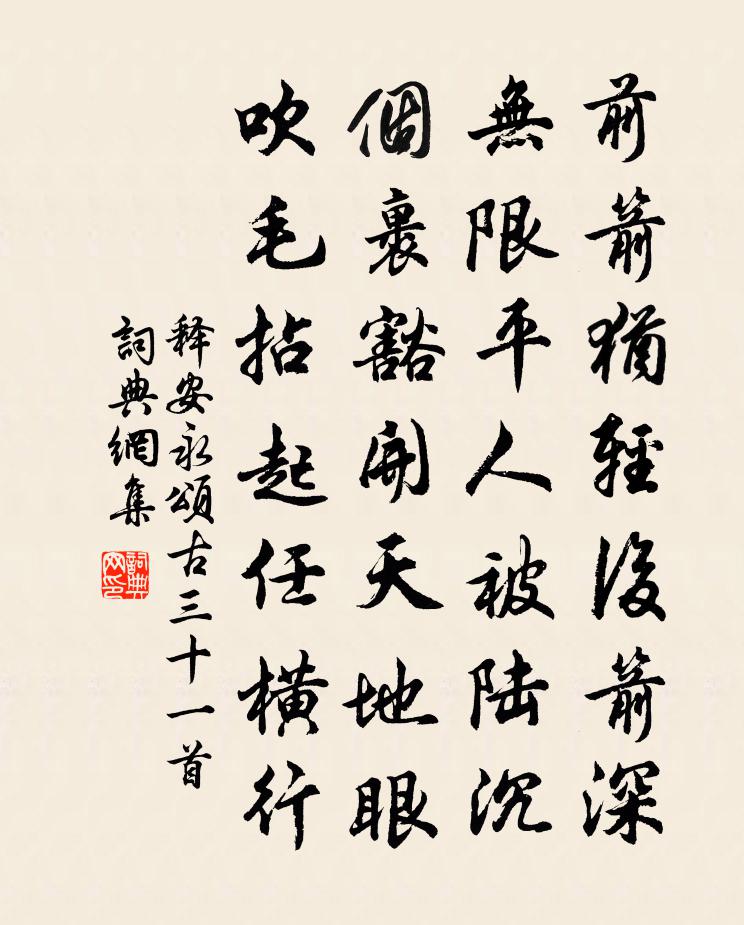 前箭猶輕後箭深
無限平人被陆沉
個裹豁開天地眼
吹毛拈起任横行
释安永頌古三十一首
詞典網集
詞典
网印